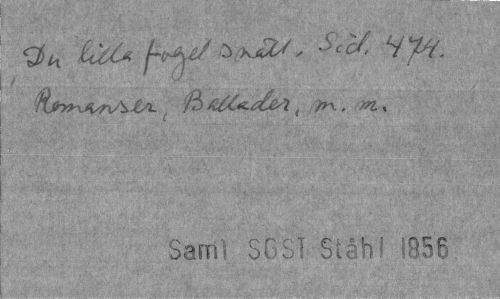 Du lilla fogel snäll. Sid. 474.
Romanser, Ballader, m. m.
Saml SGST Ståhl 1856